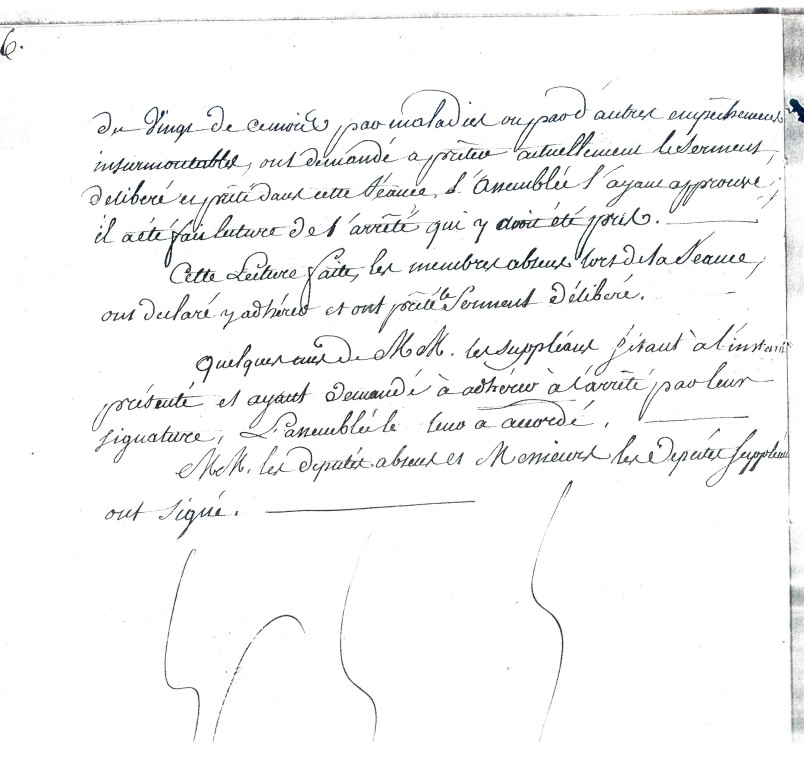 6.
du Vingt de ce mois par maladies ou par d'autres empêchemens
insurmontables, ont demandé a prêter actuellement le Serment,
deliberé et prêté dans cette Séance, L'Assemblée l'ayant approuvé,
il a été fait lecture de l'arrêté qui y avoit été pris.
Cette Lecture faite, les membres absens lors de la Séance,
ont declaré y adhérer et ont prêté le Serment Délibéré.
Quelques uns de MM. les suppléans s'étant à l'instant
présenté et ayant demandé à adhérer à l'arrêté par leur
signature, L'assemblée le leur a accordé.
MM. les députés absens et Messieurs les Députés Suppléans
ont signé.